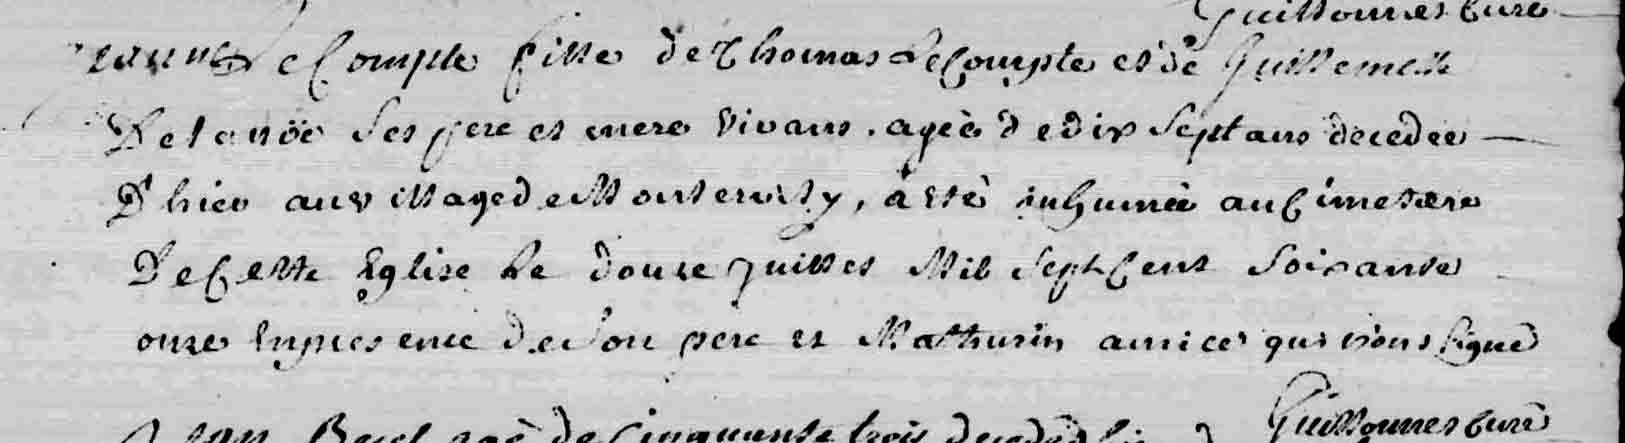 Guillonnet curé
Jeanne Lecompte fille de Thomas Lecompte et de Guillemette
Delanöe ses pere et mere vivans, ageè de dix sept ans decedée
D'hier au village de, a etè inhumèe au Cimetiere
De Cette Eglise Le douze juillet Mil sept Cent soixante
onze En presence de son pere et Mathurin amice qui n'ont signé
Guillonnet curé
agè de Cinquante trois decedé